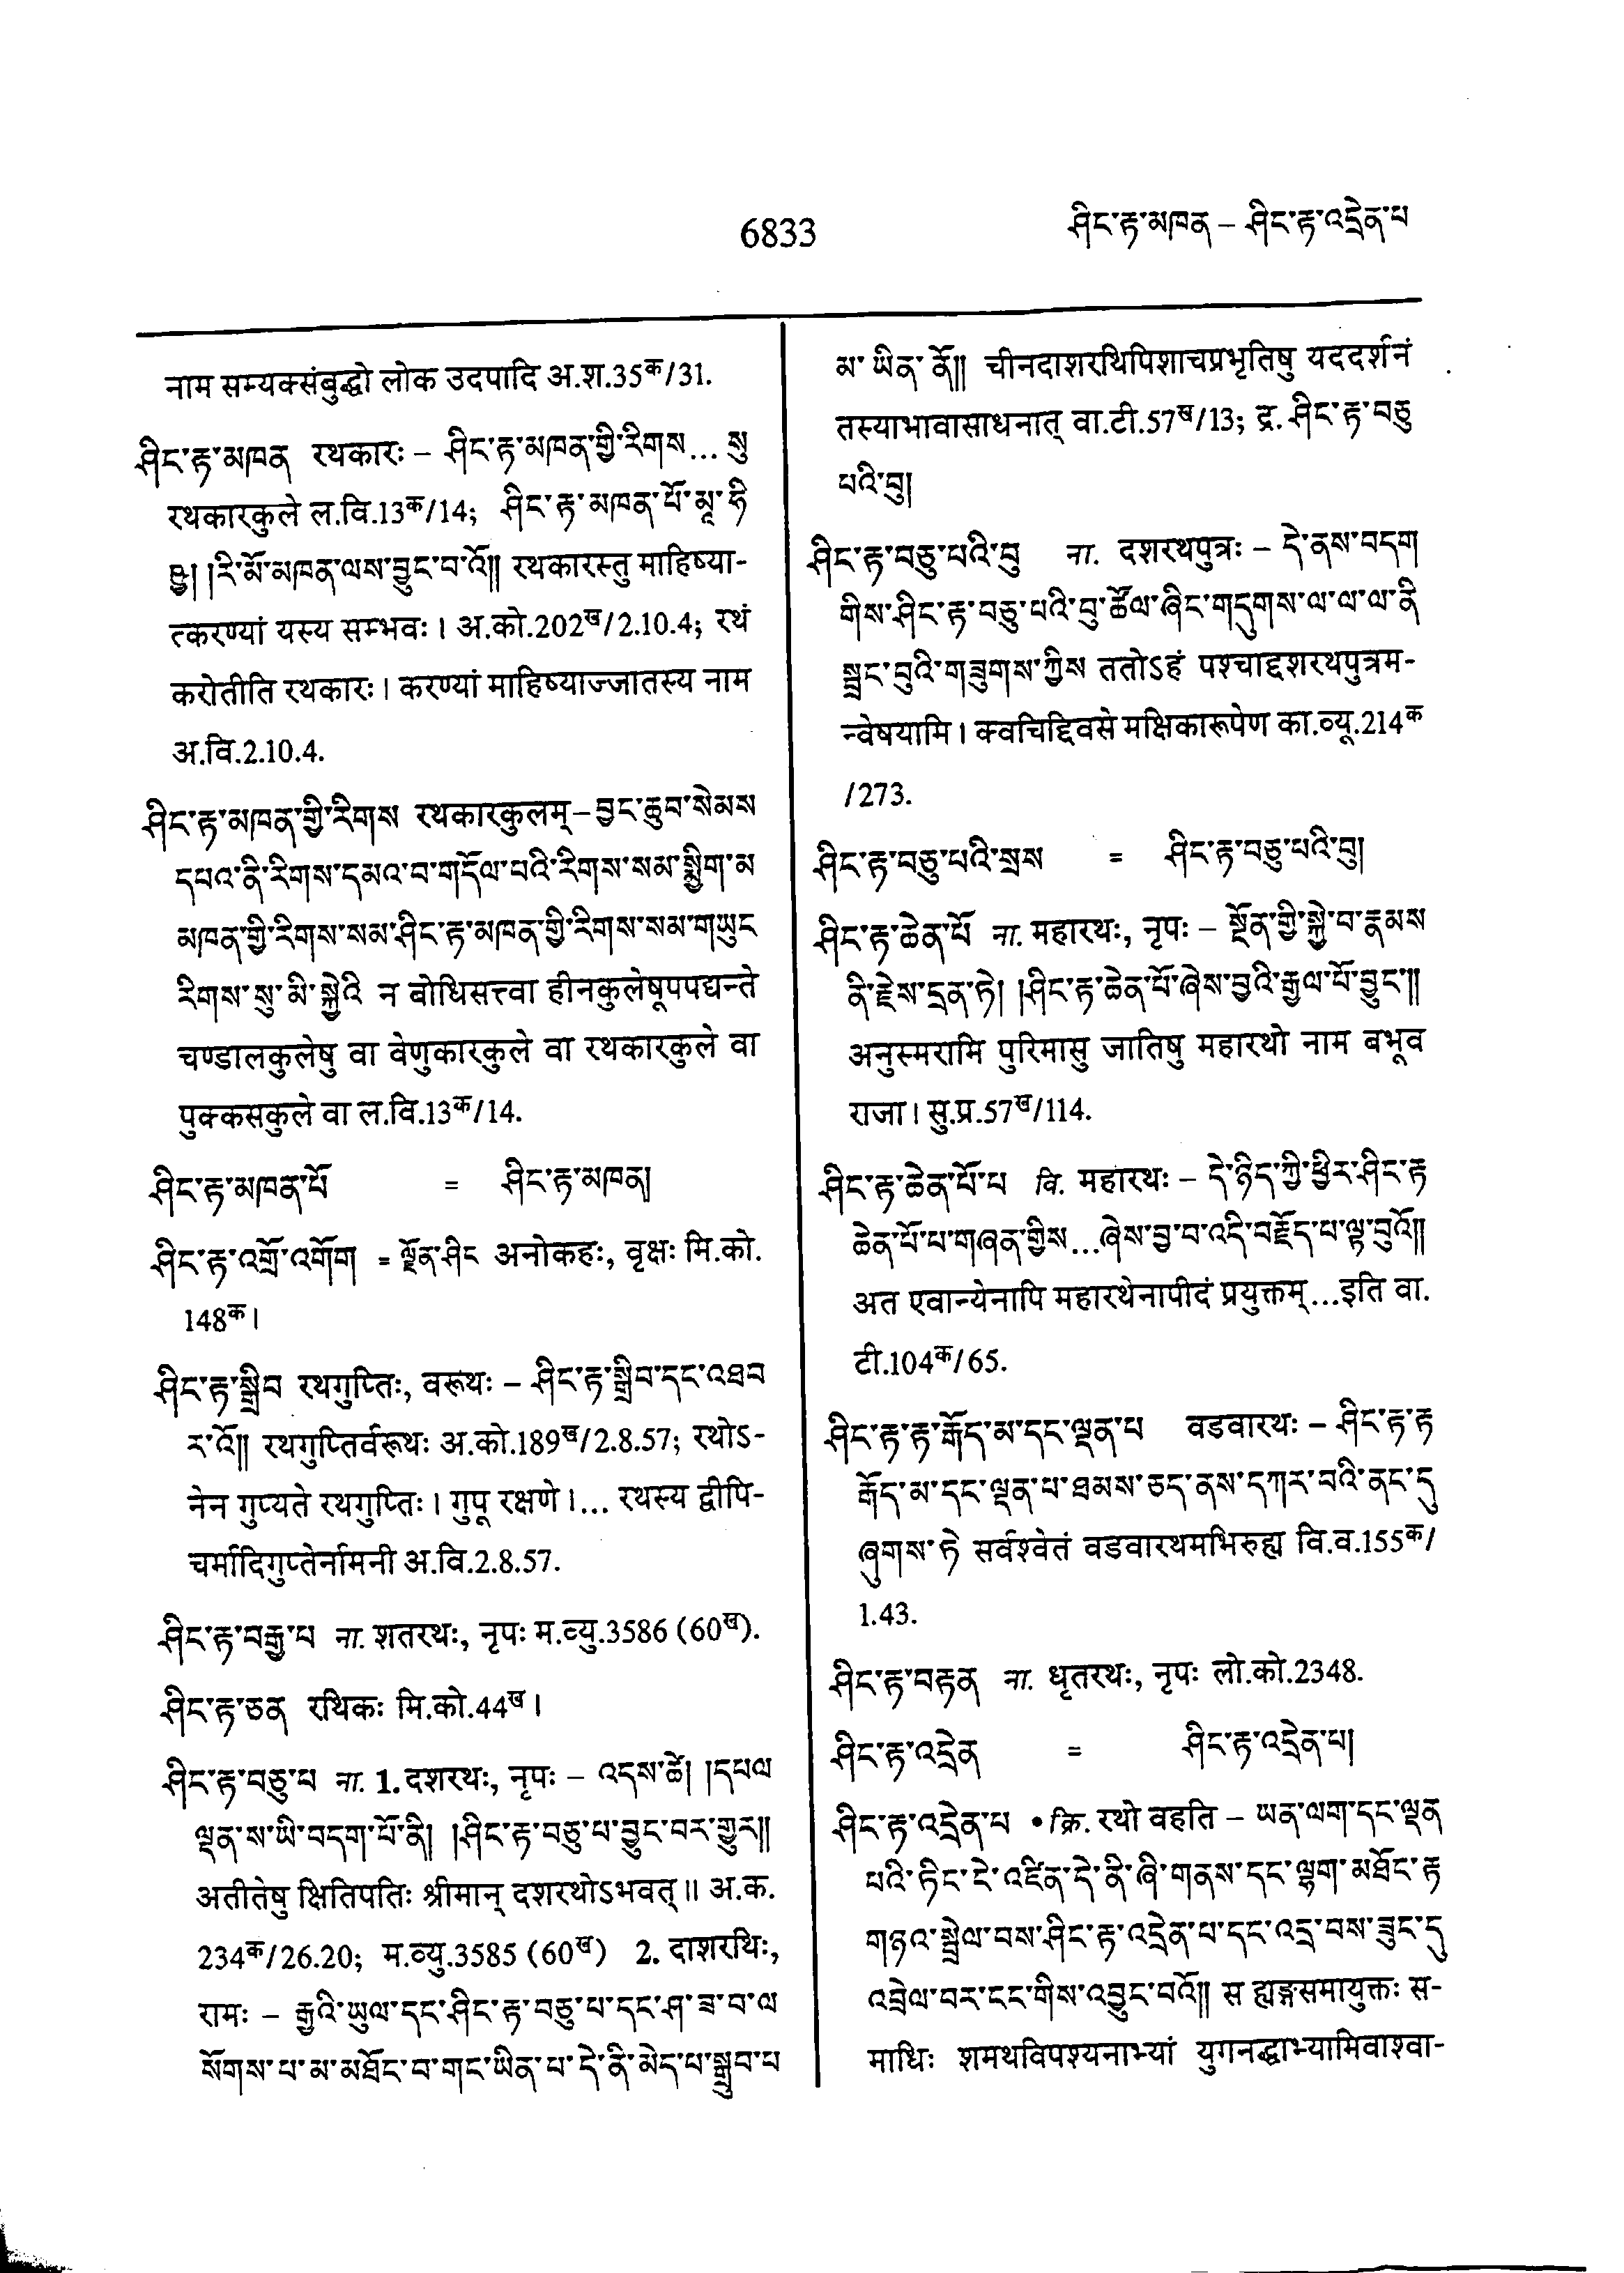 6833
ཤིང་རྟ་མཁན – ཤིང་རྟ་འདྲེན་པ
नाम सम्यक्संबुद्धो लोक उदपादि अ.श.35क/31.
ཤིང་རྟ་མཁན रथकारः – ཤིང་རྟ་མཁན་གྱི་རིགས... སུ
रथकारकुले ल.वि.13क/14; ཤིང་རྟ་མཁན་པོ་མཱ་ཧི
ཥྱ། །རི་མོ་མཁན་ལས་བྱུང་བ་འོ།། रथकारस्तु माहिष्या-
त्करण्यां यस्य सम्भवः। अ.को.202ख/2.10.4; रथं
करोतीति रथकारः। करण्यां माहिष्याज्जातस्य नाम
अ.वि.2.10.4.
ཤིང་རྟ་མཁན་གྱི་རིགས रथकारकुलम् – བྱང་ཆུབ་སེམས
དཔའ་ནི་རིགས་དམའ་བ་གདོལ་བའི་རིགས་སམ་སྨྱིག་མ
མཁན་གྱི་རིགས་སམ་ཤིང་རྟ་མཁན་གྱི་རིགས་སམ་གཡུང
རིགས་སུ་མི་སྐྱེའི न बोधिसत्त्वा हीनकुलेषूपपद्यन्ते
चण्डालकुलेषु वा वेणुकारकुले वा रथकारकुले वा
पुक्कसकुले वा ल.वि.13क/14.
ཤིང་རྟ་མཁན་པོ = ཤིང་རྟ་མཁན།
ཤིང་རྟ་འགྲོ་འགོག = ལྗོན་ཤིང अनोकहः, वृक्षः मि.को.
148क।
ཤིང་རྟ་སྒྲིབ रथगुप्तिः, वरूथः – ཤིང་རྟ་སྒྲིབ་དང་འཐབ
ར་འོ།། रथगुप्तिर्वरूथः अ.को.189ख/2.8.57; रथोऽ-
नेन गुप्यते रथगुप्तिः। गुपू रक्षणे।... रथस्य द्वीपि-
चर्मादिगुप्तेर्नामनी अ.वि.2.8.57.
ཤིང་རྟ་བརྒྱ་པ ना. शतरथः, नृपः म.व्यु.3586 (60ख).
ཤིང་རྟ་ཅན रथिकः मि.को.44ख।
ཤིང་རྟ་བཅུ་པ ना. 1. दशरथः, नृपः – འདས་ཚེ། །དཔལ
ལྡན་ས་ཡི་བདག་པོ་ནི། །ཤིང་རྟ་བཅུ་པ་བྱུང་བར་གྱུར།།
अतीतेषु क्षितिपतिः श्रीमान् दशरथोऽभवत्॥ अ.क.
234क/26.20; म.व्यु.3585 (60ख) 2. दाशरथिः,
रामः – རྒྱའི་ཡུལ་དང་ཤིང་རྟ་བཅུ་པ་དང་ཤ་ཟ་བ་ལ
སོགས་པ་མ་མཐོང་བ་གང་ཡིན་པ་དེ་ནི་མེད་པ་སྒྲུབ་པ
མ་ཡིན་ནོ།། चीनदाशरथिपिशाचप्रभृतिषु यददर्शनं
तस्याभावासाधनात् वा.टी.57ख/13; द्र. ཤིང་རྟ་བཅུ
པའི་བུ།
ཤིང་རྟ་བཅུ་པའི་བུ ना. दशरथपुत्रः – དེ་ནས་བདག
གིས་ཤིང་རྟ་བཅུ་པའི་བུ་ཚོལ་ཞིང་གདུགས་ལ་ལ་ལ་ནི
སྦྲང་བུའི་གཟུགས་ཀྱིས ततोऽहं पश्चाद्दशरथपुत्रम-
न्वेषयामि। क्वचिद्दिवसे मक्षिकारूपेण का.व्यू.214क
/273.
ཤིང་རྟ་བཅུ་པའི་སྲས = ཤིང་རྟ་བཅུ་པའི་བུ།
ཤིང་རྟ་ཆེན་པོ ना. महारथः, नृपः – སྔོན་གྱི་སྐྱེ་བ་རྣམས
ནི་རྗེས་དྲན་ཏེ། །ཤིང་རྟ་ཆེན་པོ་ཞེས་བྱའི་རྒྱལ་པོ་བྱུང་།།
अनुस्मरामि पुरिमासु जातिषु महारथो नाम बभूव
राजा। सु.प्र.57ख/114.
ཤིང་རྟ་ཆེན་པོ་པ वि. महारथः – དེ་ཉིད་ཀྱི་ཕྱིར་ཤིང་རྟ
ཆེན་པོ་པ་གཞན་གྱིས...ཞེས་བྱ་བ་འདི་བརྗོད་པ་ལྟ་བུའོ།།
अत एवान्येनापि महारथेनापीदं प्रयुक्तम्...इति वा.
टी.104क/65.
ཤིང་རྟ་རྟ་རྒོད་མ་དང་ལྡན་པ वडवारथः – ཤིང་རྟ་རྟ
རྒོད་མ་དང་ལྡན་པ་ཐམས་ཅད་ནས་དཀར་བའི་ནང་དུ
ཞུགས་ཏེ सर्वश्वेतं वडवारथमभिरुह्य वि.व.155क/
1.43.
ཤིང་རྟ་བརྟན ना. धृतरथः, नृपः लो.को.2348.
ཤིང་རྟ་འདྲེན = ཤིང་རྟ་འདྲེན་པ།
ཤིང་རྟ་འདྲེན་པ • क्रि. रथो वहति – ཡན་ལག་དང་ལྡན
པའི་ཏིང་ངེ་འཛིན་དེ་ནི་ཞི་གནས་དང་ལྷག་མཐོང་རྟ
གཉའ་སྦྲེལ་བས་ཤིང་རྟ་འདྲེན་པ་དང་འདྲ་བས་ཟུང་དུ
འབྲེལ་བར་ངང་གིས་འབྱུང་བའོ།། स ह्यङ्गसमायुक्तः स-
माधिः शमथविपश्यनाभ्यां युगनद्धाभ्यामिवाश्वा-